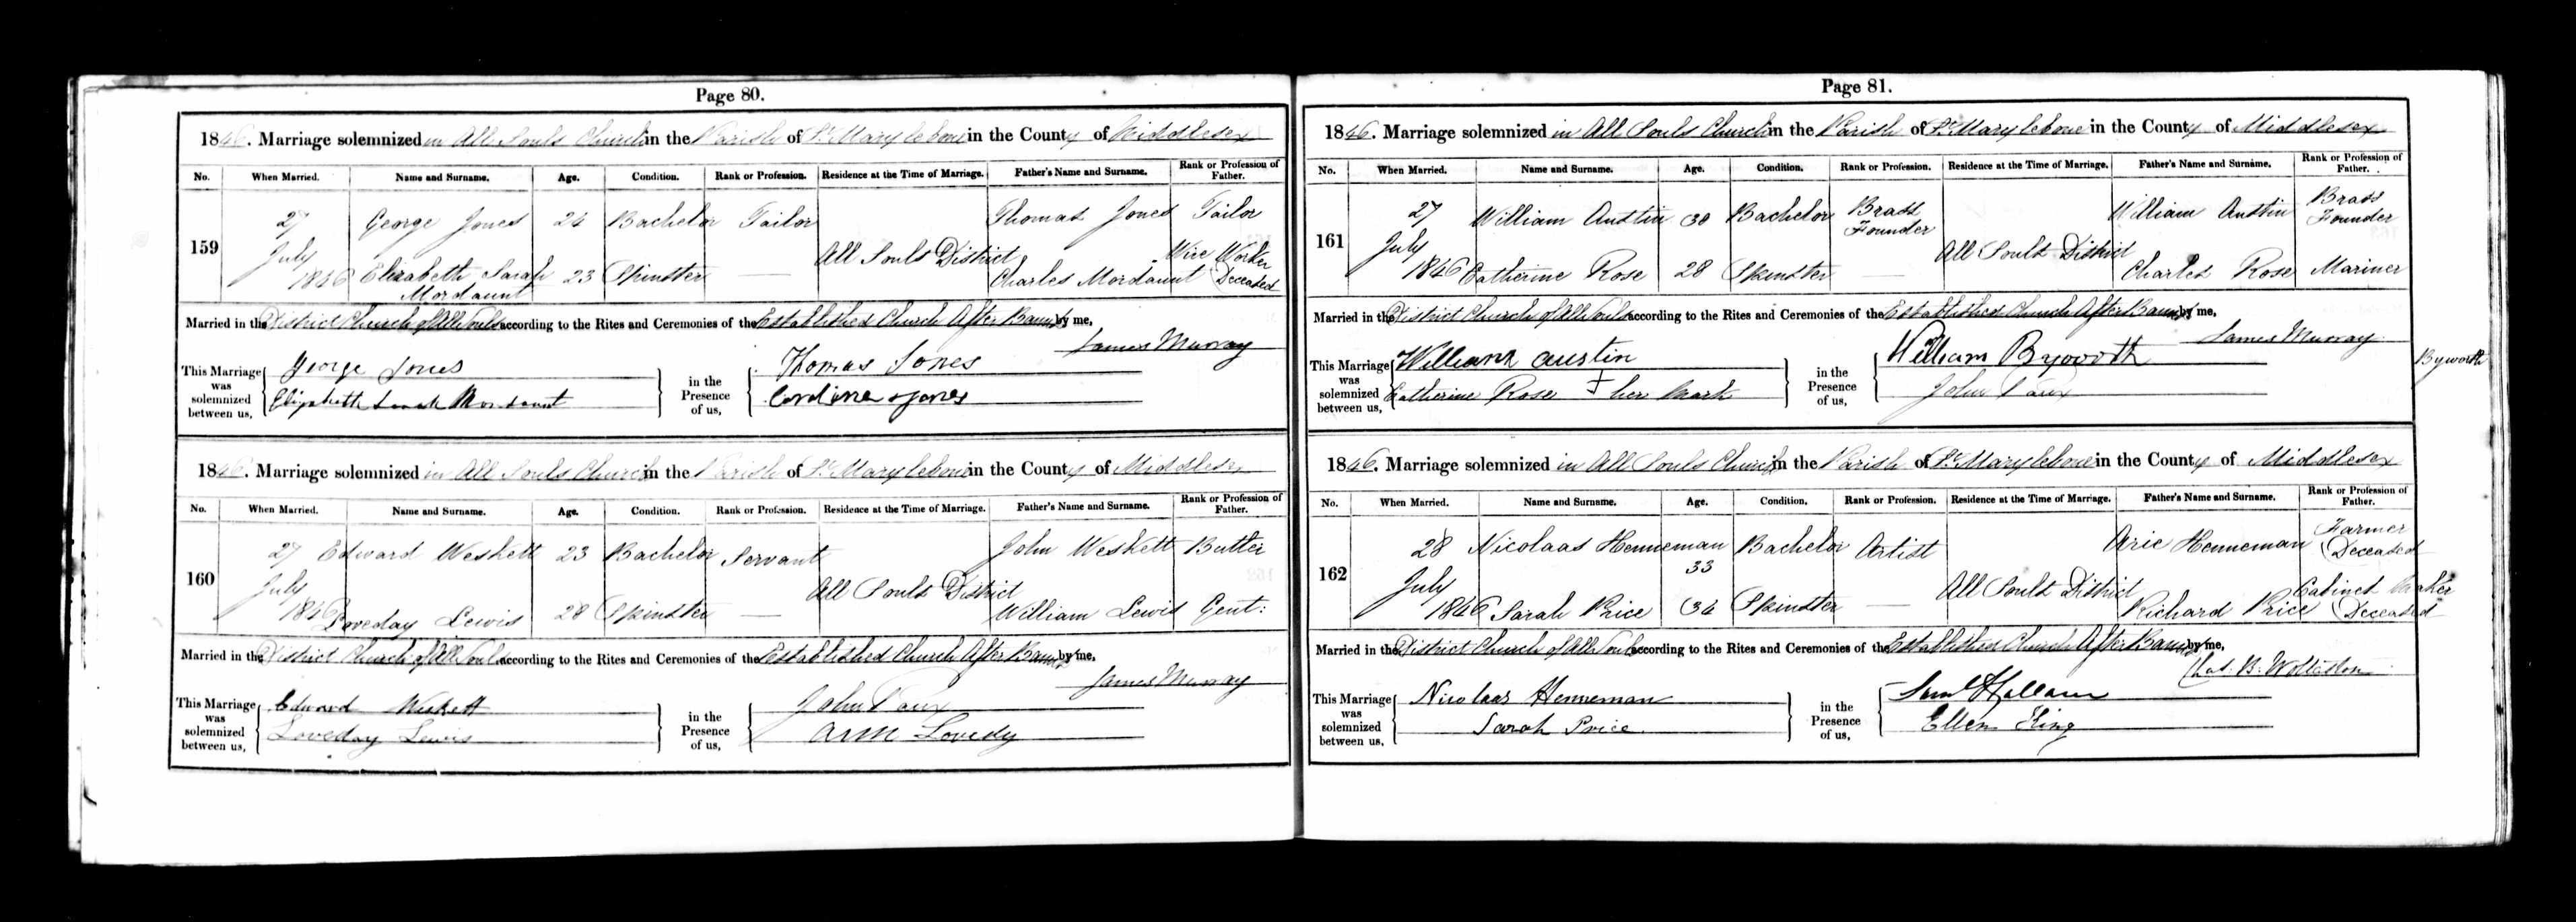 Page 80.
1846. Marriage solemnized in All Souls Church in the Parish of St Marylebone in the County of Middlesex
No. When Married. Name and Surname. Age. Condition. Rank or Profession. Residence at the Time of Marriage. Father's Name and Surname. Rank or Profession of Father.
159
27 July 1846
George Jones 24 Bachelor Tailor All Souls District Thomas Jones Tailor
Elizabeth Sarah Mordaunt 23 Spinster — Charles Mordaunt Wire Worker (Deceased
Married in the District Church of All Souls according to the Rites and Ceremonies of the Established Church After Banns by me,
James Murray
This Marriage was solemnized between us, George Jones
Elizabeth Sarah Mordaunt
in the Presence of us, Thomas Jones
Caroline Jones
1846. Marriage solemnized in All Souls Church in the Parish of St Marylebone in the County of Middlesex
No. When Married. Name and Surname. Age. Condition. Rank or Profession. Residence at the Time of Marriage. Father's Name and Surname. Rank or Profession of Father.
160
27 July 1846
Edward Weskett 23 Bachelor Servant All Souls District John Weskett Butler
Loveday Lewis 28 Spinster — William Lewis Gent:
Married in the District Church of All Souls according to the Rites and Ceremonies of the Established Church After Banns by me,
James Murray
This Marriage was solemnized between us, Edward Weskett
Loveday Lewis
in the Presence of us, John Vaux
Ann Lovedy
Page 81.
1846. Marriage solemnized in All Souls Church in the Parish of St Marylebone in the County of Middlesex
No. When Married. Name and Surname. Age. Condition. Rank or Profession. Residence at the Time of Marriage. Father's Name and Surname. Rank or Profession of Father.
161
27 July 1846
William Austin 30 Bachelor Brass Founder All Souls District William Austin Brass Founder
Catherine Rose 28 Spinster — Charles Rose Mariner
Married in the District Church of All Souls according to the Rites and Ceremonies of the Established Church After Banns by me,
James Murray
This Marriage was solemnized between us, William Austin
Catherine Rose + her Mark
in the Presence of us, William Byworth
John Vaux
Byworth
1846. Marriage solemnized in All Souls Church in the Parish of St Marylebone in the County of Middlesex
No. When Married. Name and Surname. Age. Condition. Rank or Profession. Residence at the Time of Marriage. Father's Name and Surname. Rank or Profession of Father.
162
28 July 1846
Nicolaas Henneman 33 Bachelor Artist All Souls District Arie Henneman Farmer (Deceased
Sarah Price 34 Spinster — Richard Price Cabinet Maker (Deceased
Married in the District Church of All Souls according to the Rites and Ceremonies of the Established Church After Banns by me,
Chas. B. Wollaston
This Marriage was solemnized between us, Nicolaas Henneman
Sarah Price
in the Presence of us, Saml
Ellen King